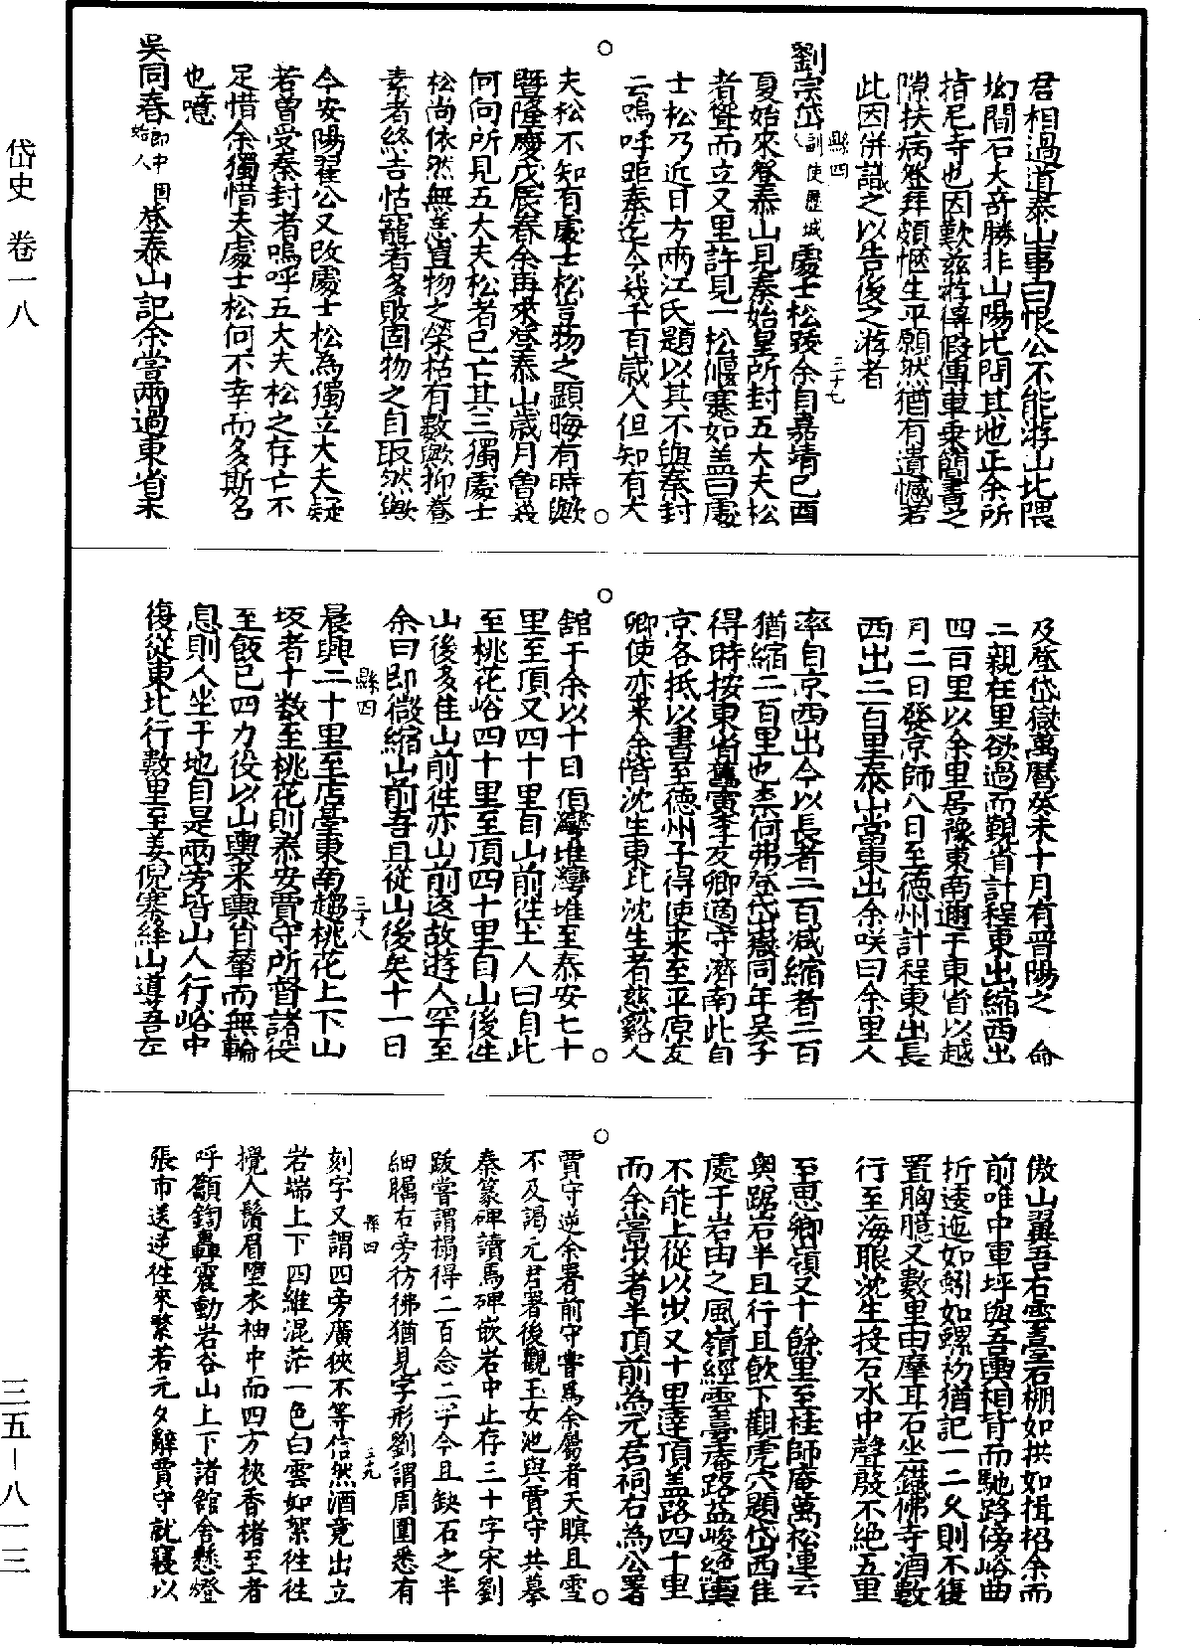 岱史 卷一八
三五—八一三
君相過道泰山事曰恨公不能游山北隈
坳間石大奇勝非山陽比閻其地正余所
指尼寺也因歎茲游得假傳車乘簡書之
隙扶病登拜頗愜生平願然猶有遺憾若
此因併識之以告後之游者
縣四
三十七
劉宗岱副使歷城人處士松䟦余自嘉靖己酉
夏始來登泰山見秦始皇所封五大夫松
者聳而立又里許見一松偃蹇如盖曰處
士松乃近日方兩江氏題以其不與秦封
云嗚呼距秦迄今幾千百歲人但知有大
夫松不知有處士松豈物之顯晦有時歟
曁隆慶戊辰春余再來登泰山歲月曾幾
何向所見五大夫松者已亡其三獨處士
松尚依然無恙豈物之榮枯有數歟抑養
素者終吉怙寵者多敗固物之自取然歟
今安陽翟公又改處士松為獨立大夫疑
若曾受秦封者嗚呼五大夫松之存亡不
足惜余獨惜夫處士松何不幸而多斯名
也噫
吳同春郎中固始人登泰山記余嘗兩過東省未
及登岱嶽萬曆癸未十月有晋陽之 命
二親在里欲過而覲省計程東出縮西出
四百里以余里居豫東南邇于東省以越
月二日發京師八日至德州計程東出長
西出二百里泰山當東出余咲曰余里人
率自京西出今以長者二百减縮者二百
猶縮二百里也柰何弗登岱嶽同年吴子
得時按東省舊寅李友卿適守濟南此自
京各抵以書至德州子得使来至平原友
卿使亦来余偕沈生東比沈生者慈谿人
舘于余以十日佰灣堆灣堆至泰安七十
里至頂又四十里自山前徃土人曰自此
至桃花峪四十里至頂四十里自山後徃
山後多隹山前徃亦山前返故遊人罕至
余曰即微縮山前吾且從山後矣十一日
縣四
三十八
晨興二十里至店臺東南趨桃花上下山
坂者十数至桃花則泰安賈守所督諸役
至飯已四力役以山輿来輿肖輦而無輪
息則人坐于地自是兩旁皆山人行峪中
復從東北行數里至姜倪寨絳山導吾左
傲山翼吾右雲臺石棚如拱如揖招余而
前唯中軍坪與吾輿相背而馳路傍峪曲
折逶迤如蚓如螺初猶記一二乆則不復
置胸臆又數里由摩耳石坐鐵佛寺酒數
行至海眼沈生投石水中聲殷不絶五里
至思卿嶺又十餘里至桂師庵萬松連云
奥踞岩半且行且飲下觀虎穴題岱西隹
處于岩由之風嶺經雲臺庵路益峻絕輿
不能上從以步又十里達頂盖路四十里
而余嘗步者半頂前為元君祠右為公署
賈守逆余署前守嘗爲余屬者天瞑且雪
不及謁元君署後觀玉女池與賈守共摹
秦篆碑讀馬碑嵌岩中止存三十字宋劉
跂嘗謂搨得二百念二字今且缺石之半
細矚右旁彷彿猶見字形劉謂周圍悉有
縣四
三十九
刻字又謂四旁廣狹不等信然酒竟出立
岩端上下四維混茫一色白雲如絮徃徃
攪人鬚眉墮衣袖中而四方挾香楮至者
呼籲鍧轟震動岩谷山上下諸舘舍懸燈
張市送逆往來繁若元夕辭賈守就寢以